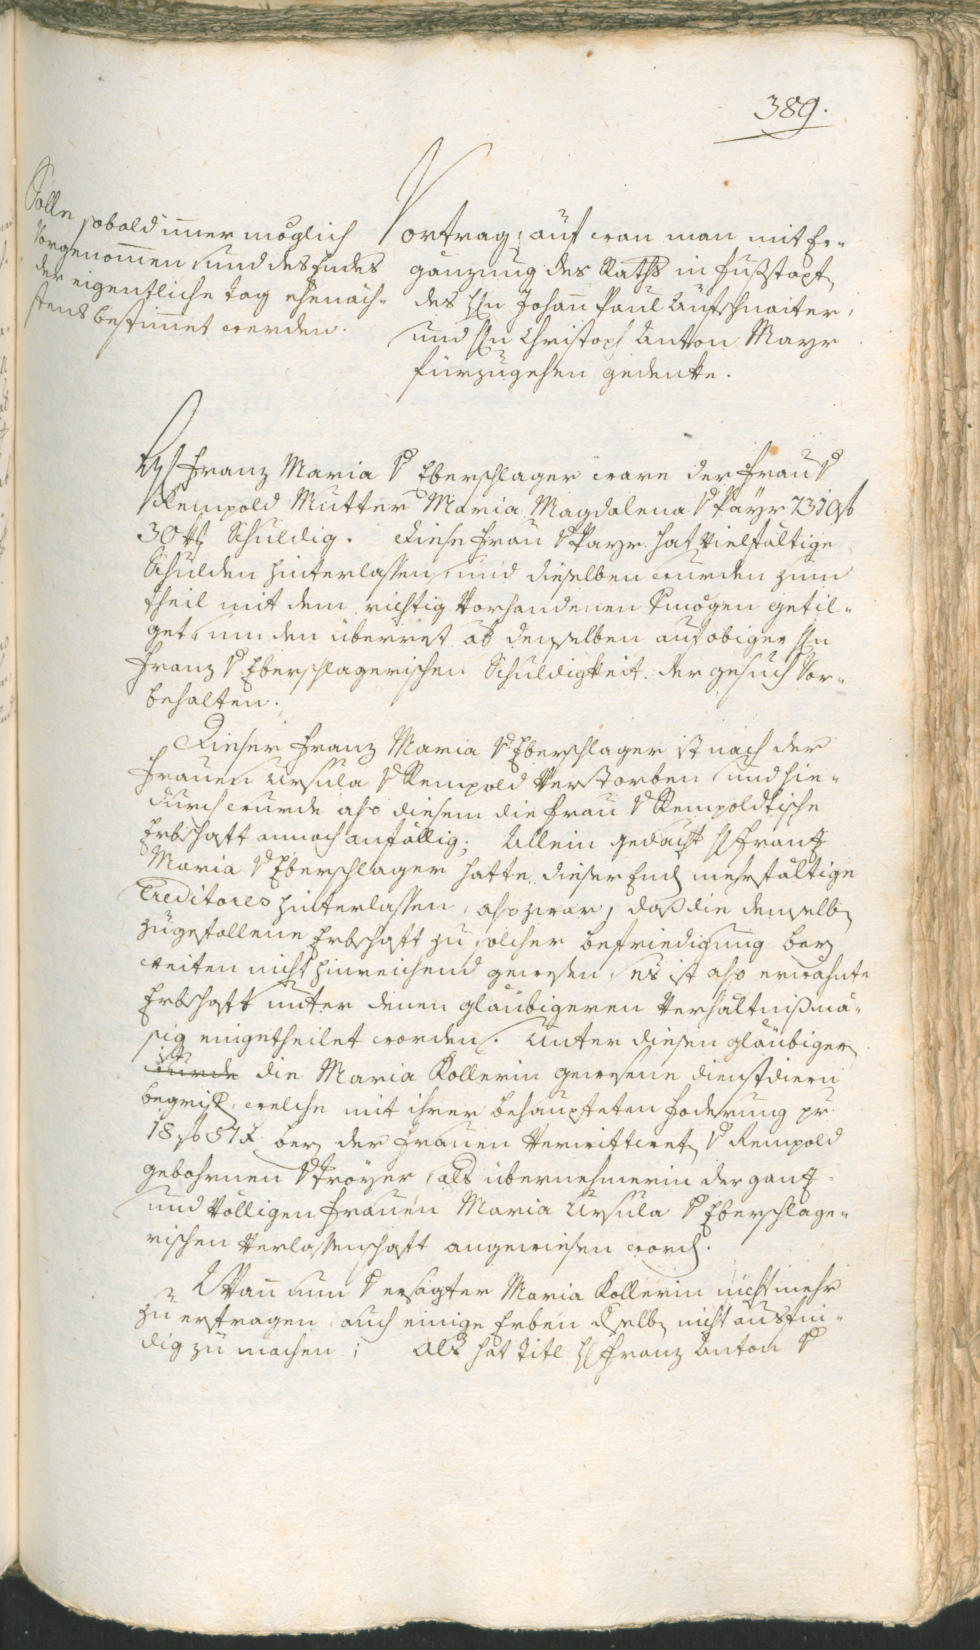 389.
Solle sobald im̄er möglich
Vorgenom̄en, und des Endes
der eigentliche Tag ehenäch-
stens bestim̄et werden.
Vortrag, auf wan man mit Er-
gänzung des Raths in Fußstapf
des Hn Johan̄ Paul Aufschnaiter,
und Hn Christoph Anton Mayr
fürzugehen gedenke.
Hr Franz Maria v Eberschlager ware der Frau v
Rempold Mutter Maria Magdalena v Payr 2319 f
30 kr schuldig. Diese Frau v Payr hat vielfältige
Schulden hinterlassen, und dieselben wurden zum
theil mit dem richtig vorhandenen Vmögen getil-
get, um den überrest ab denselben auf obiger Hn
Franz v Eberschlagerischen Schuldigkeit der gesuch Vor-
behalten.
Dieser Franz Maria v Eberschlager ist nach der
Frauen Ursula v Rempold Verstorben, und hie-
durch wurde also diesem die Frau v Rempoldtische
Erbschaft annoch anfällig; Allein gedacht H Frantz
Maria v Eberschlager hatte dieser Ends mehrfältige
Creditores hinterlassen, also zwar, daß die demselb
zugefallene Erbschaft zu solcher befriedigung bey
weiten nicht hinreichend gewesen, es ist also erwähnte
Erbschaft unter denen glaubigeren Verhältnißmä-
sig eingetheilet worden. Unter diesen glaubiger
ist
wurde die Maria Kollerin gewesene dienstdiern
begrif, welche mit ihrer behaupteten Foderung pr
18 f 57 x bey der Frauen Verwittwet v Rempold
gebohrnen v Troyer, als übernehmerin der gantz
und Völligen Frauen Maria Ursula v Eberschlage-
rischen Verlassenschaft angewiesen word.
Wan̄ nun v ersagter Maria Kollerin nicht mehr
zu erfragen, auch einige Erben dselb nicht ausfin-
dig zu machen; Als hat Titl H Franz Anton v